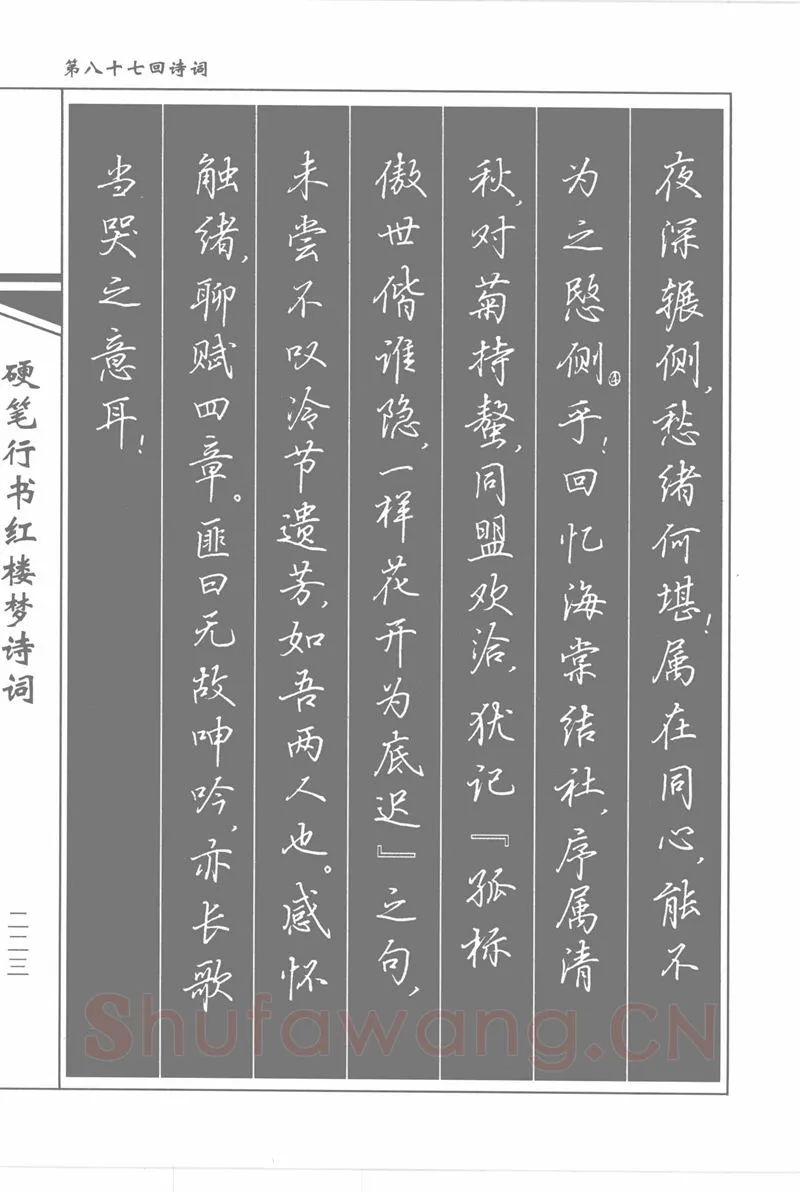 第八十七回诗词
夜深辗侧，愁绪何堪！属在同心，能不
为之愍侧④乎！回忆海棠结社，序属清
秋，对菊持螯，同盟欢洽，犹记『孤标
傲世偕谁隐，一样花开为底迟』之句，
未尝不叹冷节遗芳，如吾两人也。感怀
触绪，聊赋四章。匪曰无故呻吟，亦长歌
当哭之意耳！
硬笔行书红楼梦诗词
二二三
Shufawang.CN